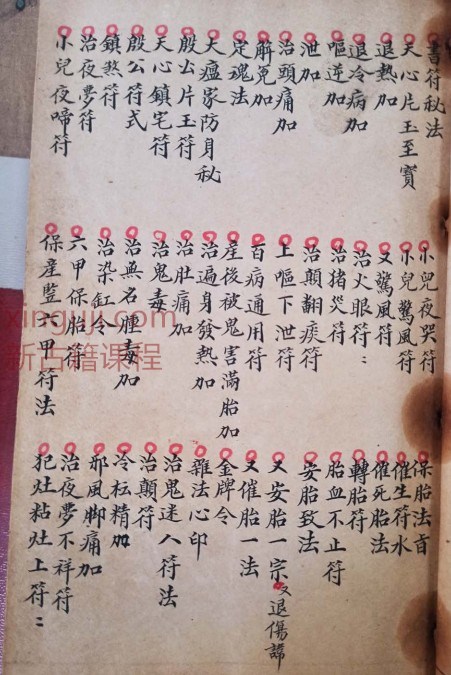 書符秘法
天心片玉至寶
退熱加
退冷病加
嘔逆加
泄加
治頭痛加
解免加
定魂法
大瘟家防身秘
殷公片玉符
天心鎮宅符
殷公符式
鎮煞符
治夜夢符
小兒夜啼符
小兒夜哭符
小兒驚風符
又驚風符
治火眼符：
治猪災符
治顛翻痰符
上嘔下泄符
百病通用符
產後被鬼害滿胎加
治遍身發熱加
治肚痛加
治鬼毒
治無名腫毒加
治染缸令
六甲保胎符
保產監六甲符法
保胎法百
催生符水
催死胎法
轉胎符
胎血不止符
安胎致法
又安胎一宗
又退傷諱
又催胎一法
金牌令
雜法心印
治鬼迷人符法
治顛符
冷枟精加
邪風脚痛加
治夜夢不祥符
犯灶粘灶上符：
xingjiji.com
新古籍课程